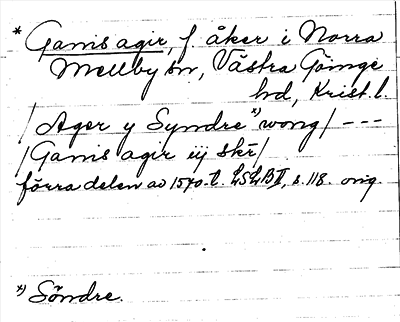 * Gamis agir, f. åker i Norra
Mellby sn, Västra Göinge
hd, Krist. l.
/ Ager y Syndre x) wong / ---
/ Gamis agir iij skr̄ /
förra delen av 1570-t. LSLB II, s. 118. orig.
x) Söndre.